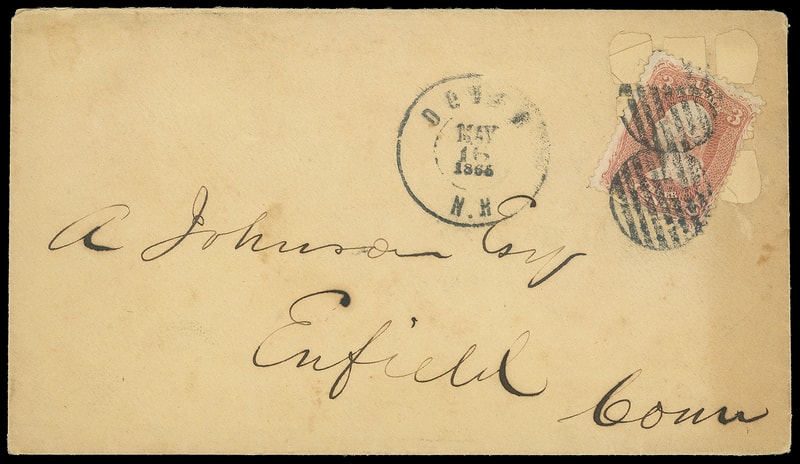 DOVER
MAY
1865
N.H
3
A Johnson Esq
Enfield
Conn